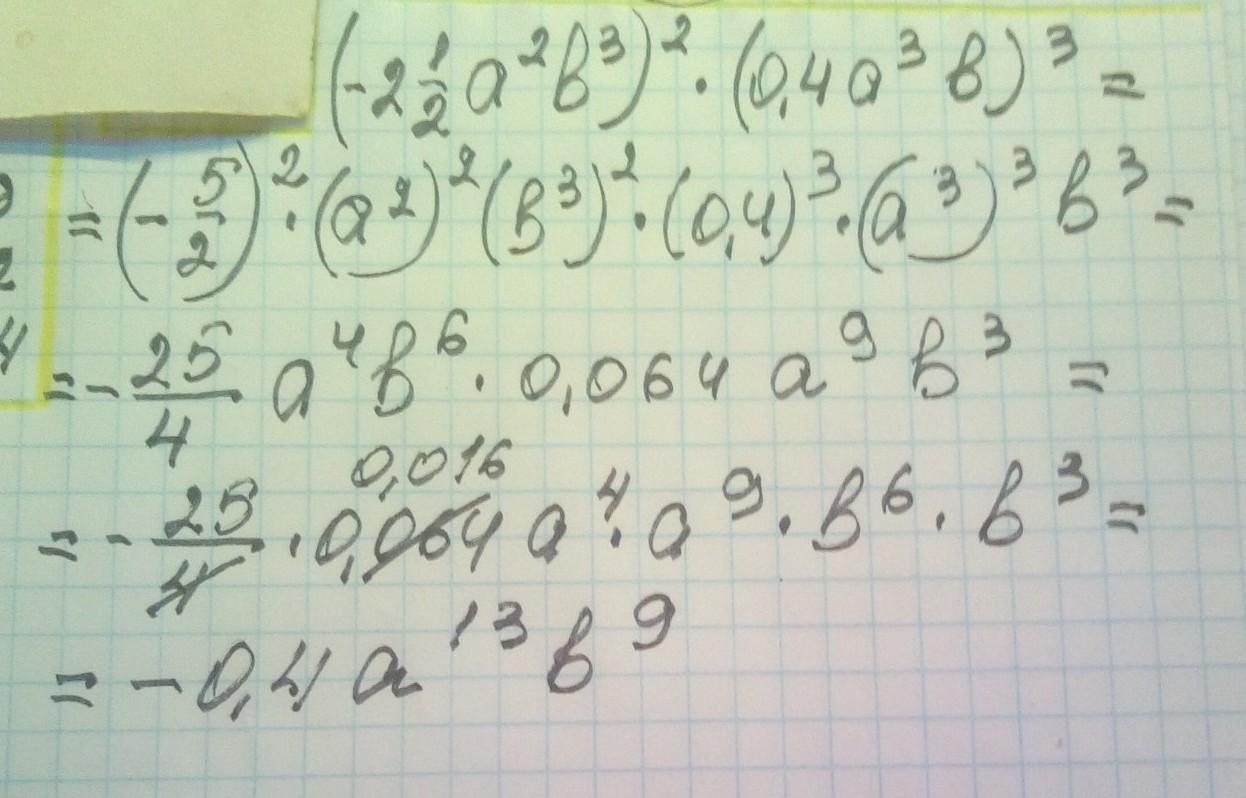 (-2 1/2 a²b³)² · (0,4a³ b)³ =
= (-5/2)² · (a²)² (b³)² · (0,4)³ · (a³)³ b³ =
= - 25/4 a⁴b⁶ · 0,064 a⁹ b³ =
0,016
= - 25/4 · 0,064 a⁴ · a⁹ · b⁶ · b³ =
= - 0,4 a¹³ b⁹